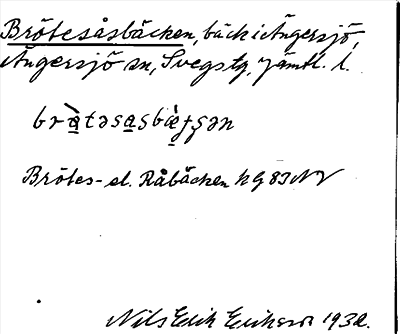 Brötesåsbäcken, bäck i Ängersjö,
Ängersjö sn, Svegs tg, Jämtl. l.
bràtəsasbæ̀ʃʂən
Brötes- el. Råbäcken hg 83 NV
Nils Erik Eriksson 1932.